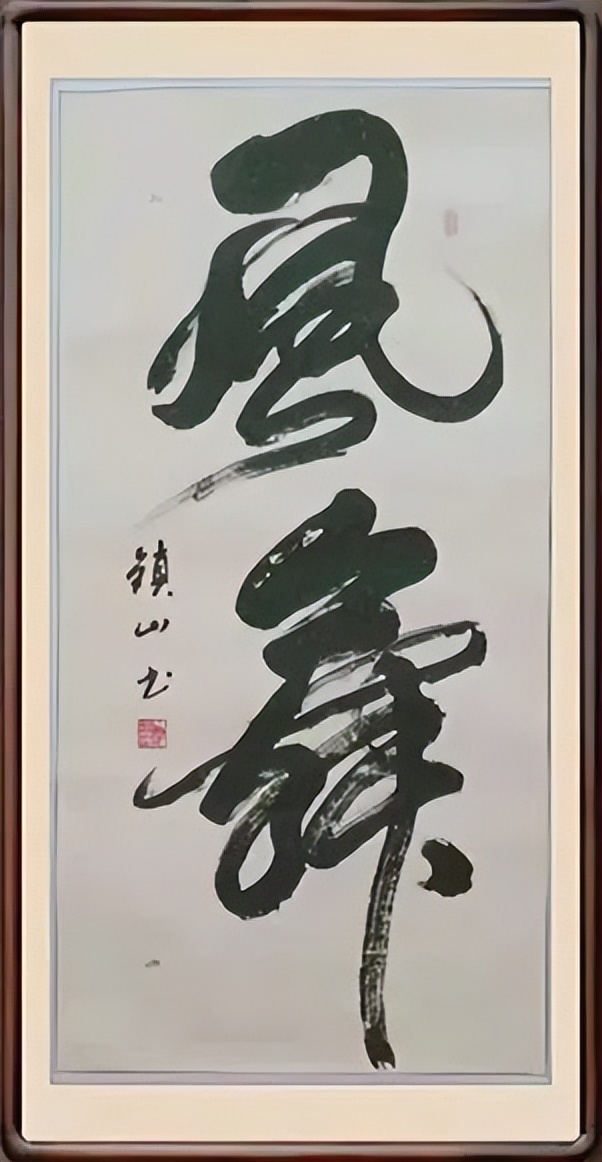 风舞
镇山书